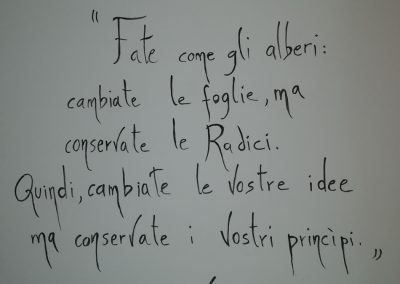 "Fate come gli alberi:
cambiate le foglie, ma
conservate le Radici.
Quindi, cambiate le vostre idee
ma conservate i vostri princìpi.„